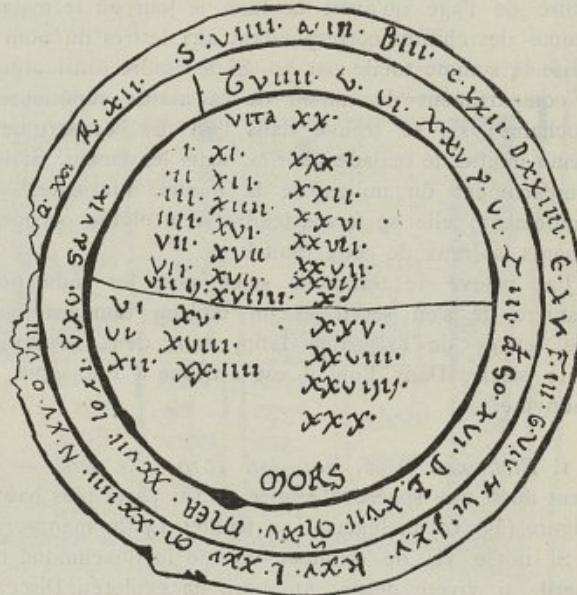 S. VIIII. a. III. BIII. C. XXII. DXXIIII. E XV. FIII. G VII. H. VI. I. XV. K XV. L. XXV. M. XXIIII. N. XV. O. VIII Q. XXI. R. XII.
T VIIII. V. VI. X XXV. Y VI. Z III. d. So XVI. D. L. XVII. M XV. MER XXVIII. IO XI. V XV. Sd VIX.
VITA XX.
I. XI.
II XII. XXII.
III XIII. XXVI.
IIII. XVI.
VII. XVII XXVII.
VII. XVIJ
XVIIII. X
VI XV. XXV.
VI. XVIII. XXVIII.
XII. XX.IIII XXVIIIJ.
XXX.
MORS